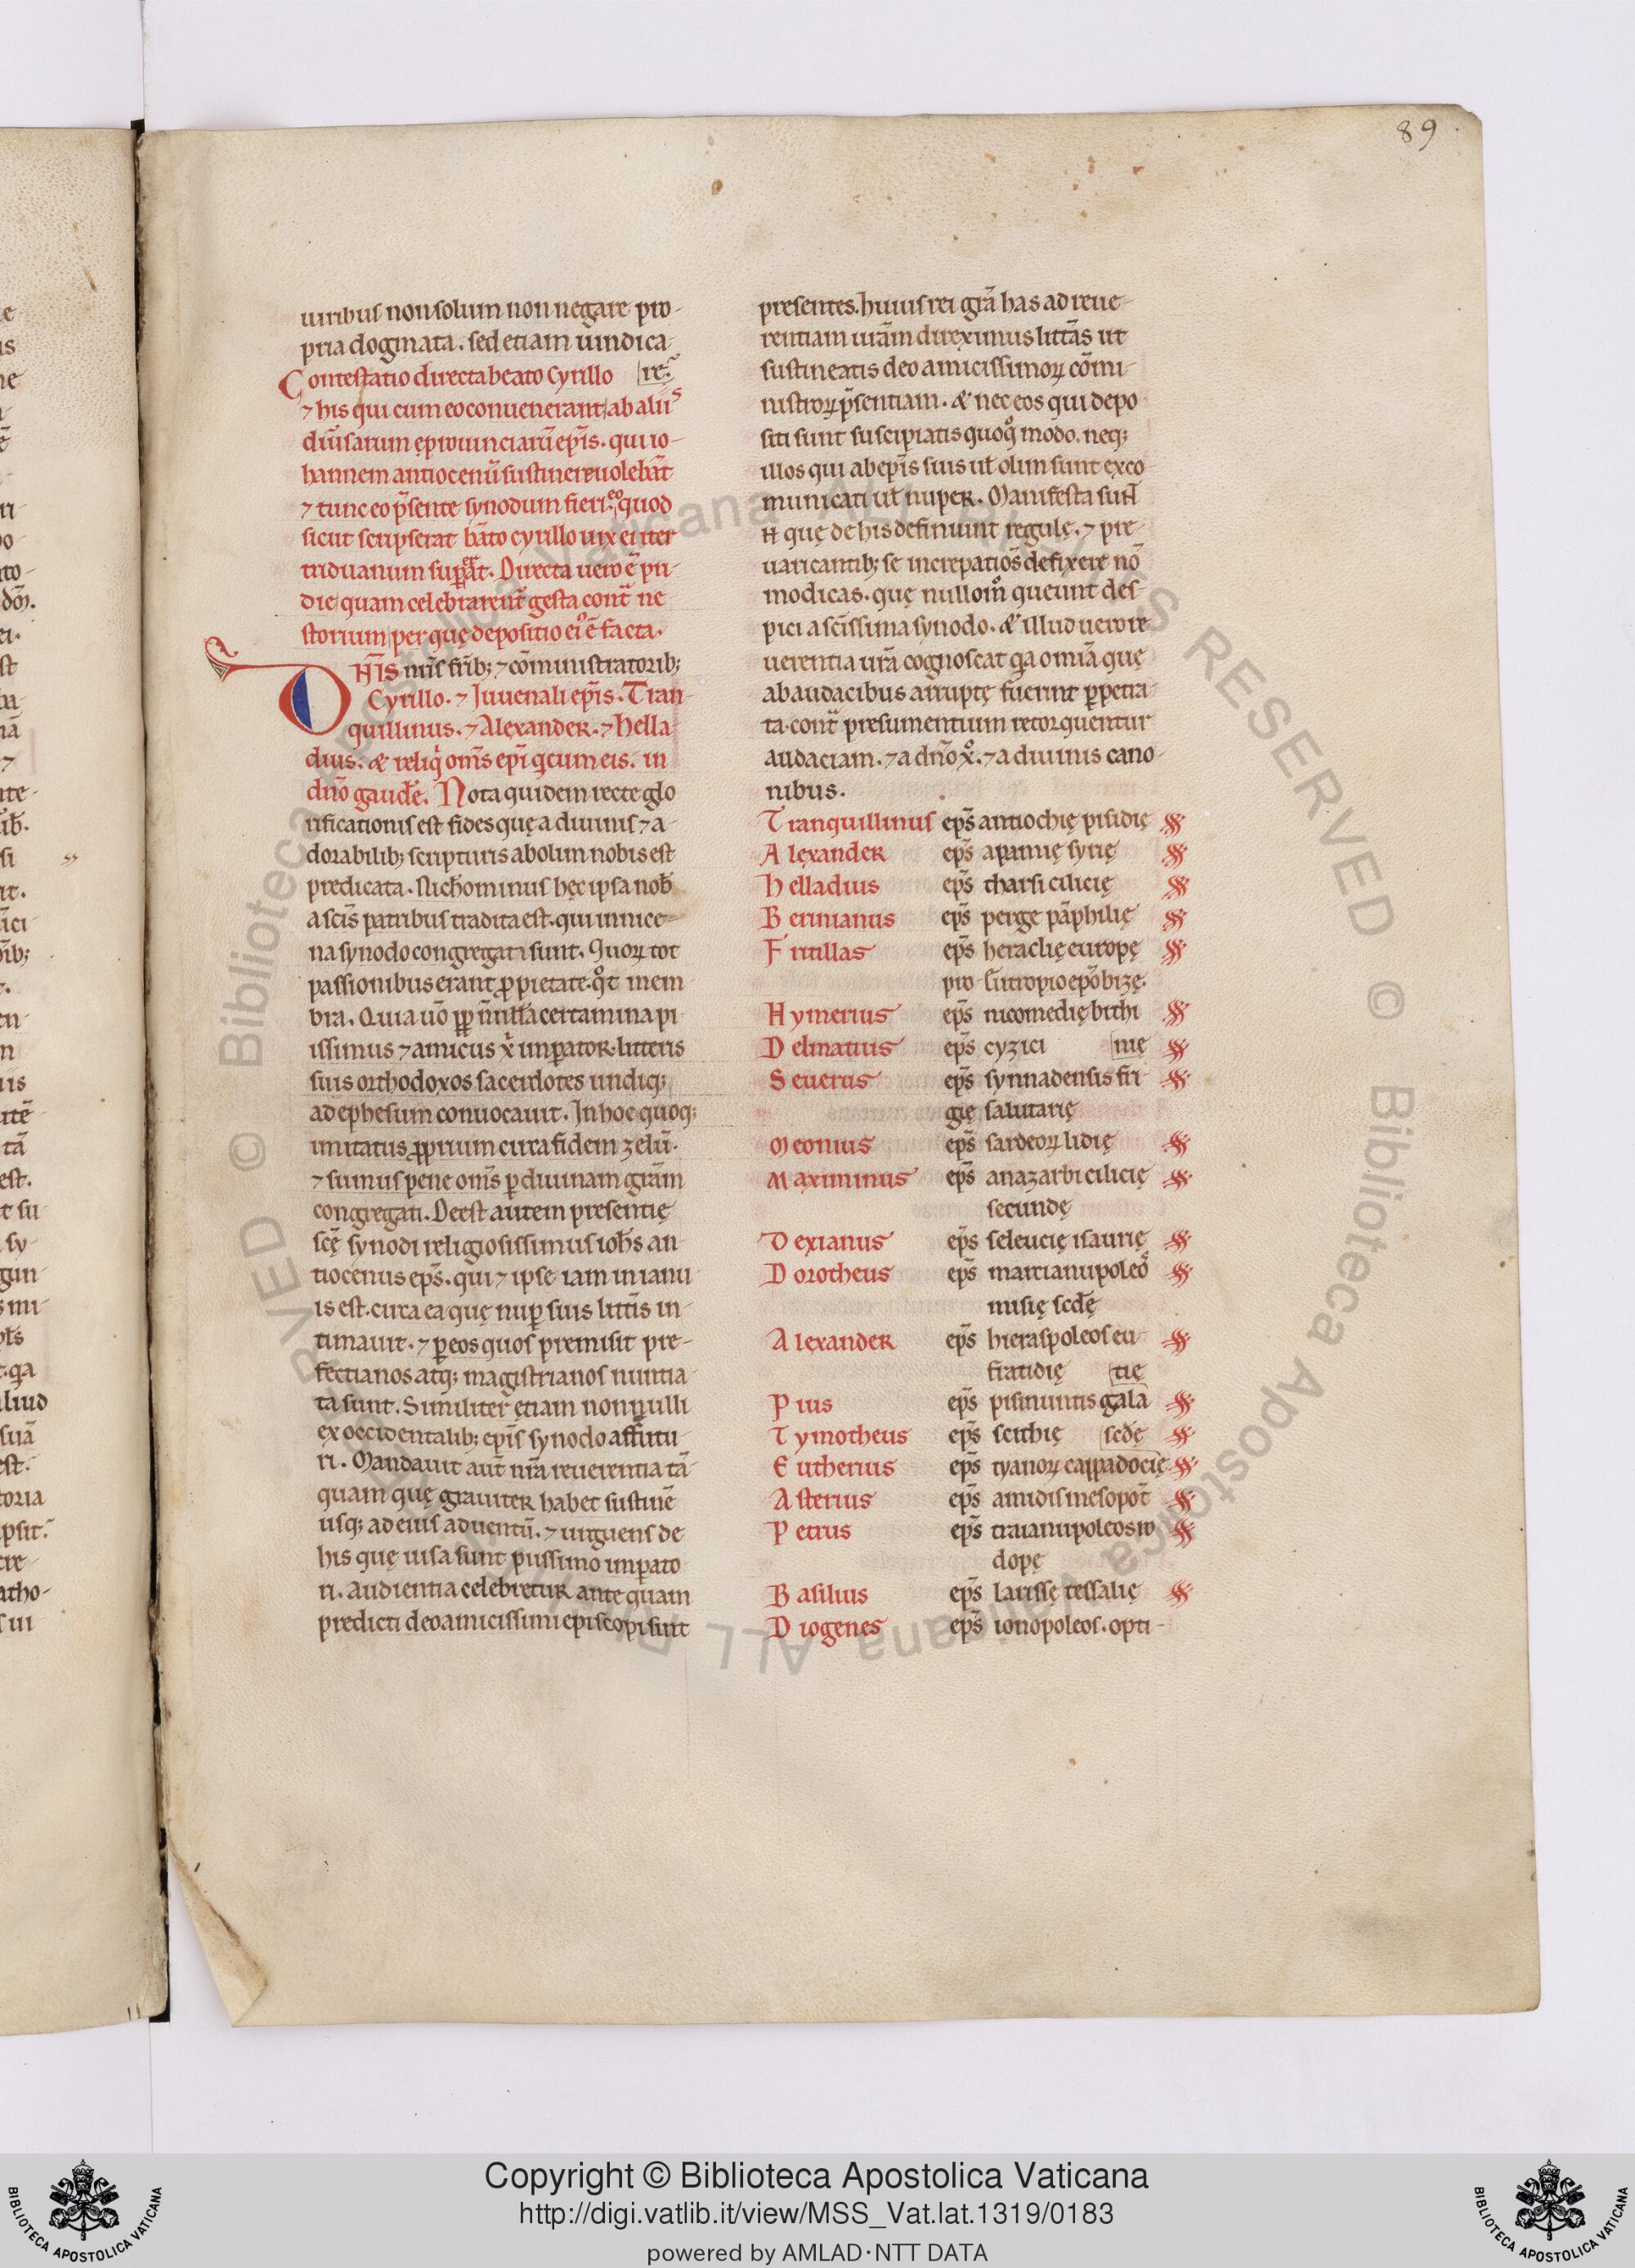 89
uiribus non solum non negare pro-
pria dogmata. sed etiam uindica-
re.
Contestatio directa beato Cyrillo
⁊ his qui cum eo conuenerant ab aliis
diũsarum ꝓuinciarũ ep̃is. qui io-
hannem antiocenũ sustinere uolebãt
⁊ tunc eo p̃sente synodum fieri. eo quod
sicut scripserat bãto cyrillo uix ei iter
triduanum suꝑerat. Directa uero ẽ pri-
die quam celebrarent̃ gesta cont̃ ne
storium per quę depositio ei᷒ ẽ facta.
Dñis nr̃is fr̃ib; ⁊ cõministratorib;
Cyrillo. ⁊ Iuuenali ep̃is. Tran-
quillinus. ⁊ Alexander. ⁊ hella-
dius. & reliq̇ om̃s ep̃i q̇ cum eis. in
dño gaudẽ. Nota quidem recte glo
rificationis est fides quę a diuinis ⁊ a-
dorabilib; scripturis ab olim nobis est
predicata. Nichominus hęc ipsa nob̃
a sc̃is patribus tradita est. qui in nice-
na synodo congregati sunt. Quoꝝ tot
passionibus erant ꝓ pietate. qͦt mem
bra. Quia uõ ꝓpt̃ nr̃a certamina pi
issimus ⁊ amicus xp̃i imꝑator. litteris
suis orthodoxos sacerdotes undiq;
ad ephesum conuocauit. In hoc quoq;
imitatus ꝓprium circa fidem zelũ.
⁊ sumus pene om̃s ꝑ diuinam gr̃am
congregati. Deest autem presentię
sc̃ę synodi religiosissimus ioh̃s an-
tiocenus ep̃s. qui ⁊ ipse iam in ianu
is est. circa ea quę nuꝑ suis litt̃is in-
timauit. ⁊ ꝑ eos quos premisit pre-
fectianos atq; magistrianos nuntia-
ta sunt. Similiter ętiam nonnulli
ex occidentalib; ep̃is synodo affutu-
ri. Mandauit aut̃ nr̃a reuerentia tã-
quam quę grauiter habet sustinẽ
usq; ad eius aduentũ. ⁊ urguens de
his quę uisa sunt piissimo imꝑato-
ri. audientia celebretur ante quam
predicti deo amicissimi episcopi sint
presentes. huius rei gr̃a has ad reue-
rentiam ur̃am direximus litt̃as ut
sustineatis deo amicissimoꝝ cõmi-
nistroꝝ p̃sentiam. & nec eos qui depo
siti sunt suscipiatis quoqͦ modo. neq;
illos qui ab ep̃is suis ut̃ olim sunt exco
municati ut̃ nuper. Manifesta sunt
ñ quę de his definiunt regulę. ⁊ pre-
uaricantib; se increpatioẽs defixere nõ
modicas. quę nullom̊ queunt des-
pici a sc̃issima synodo. & illud uero re
uerentia ur̃a cognoscat qa omĩa quę
ab audacibus arruptę fuerint ꝑpetra-
ta. cont̃ presumentium retorquentur
audaciam. ⁊ a dño xͦ. ⁊ a diuinis cano-
nibus.
Tranquillinus ep̃s antiochię pisidię
Alexander ep̃s apamię syrię
Helladius ep̃s tharsi cilicię
Berinianus ep̃s perge pãphilię
Fritillas ep̃s heraclię europę
pro eutropio ep̃o bizę.
Hymerius ep̃s nicomedię bithi
nię
Delmatius ep̃s cyzici
Seuerus ep̃s synnadensis fri
gię salutarię
Meonius ep̃s sardeoꝝ lidię
Maximinus ep̃s anazarbi cilicię
secundę
Dexianus ep̃s seleucię isaurię
Dorotheus ep̃s martianupoleo᷒
misię sc̃dę
Alexander ep̃s hieraspoleos eu-
fratidię
Pius ep̃s pisinuntis gala
tię
Tymotheus ep̃s scithię sc̃dę
Eutherius ep̃s tyanoꝝ cappadocię
Asterius ep̃s amidis mesopot̃
Petrus ep̃s traianupoleos ro
dopę
Basilius ep̃s larissę tessalię
Diogenes ep̃s ionopoleos. opti-
Copyright © Biblioteca Apostolica Vaticana
http://digi.vatlib.it/view/MSS_Vat.lat.1319/0183
powered by AMLAD·NTT DATA
BIBLIOTECA APOSTOLICA VATICANA
BIBLIOTECA APOSTOLICA VATICANA